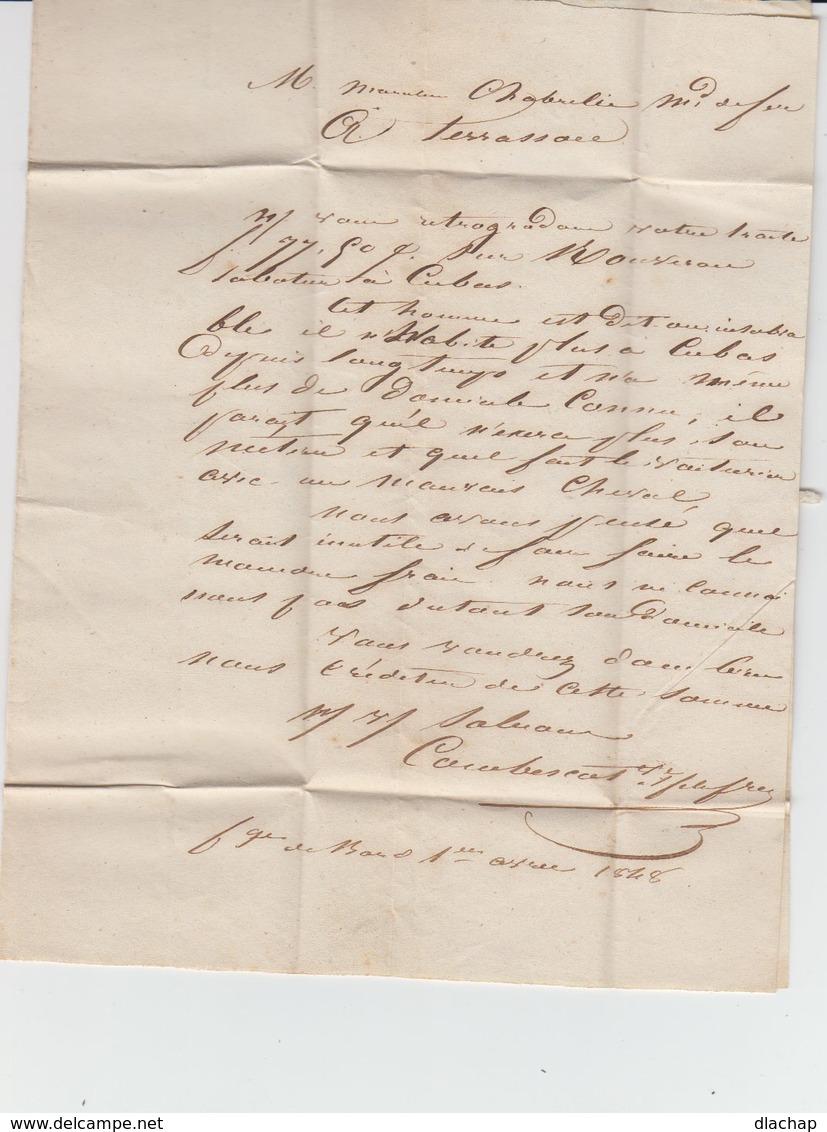 M. Chabrelie md de fer
A Terrasson
n/ vous rétrogradons votre traite
f 77, 50 c. sur Rouveron
sabotier à Cubas.
Cet homme est dit on insolva
ble il n'habite plus a Cubas
depuis longtemps et n'a même
plus de domicile connu, il
parait qu'il n'exerce plus son
métier et quil fait le voiturier
avec un mauvais cheval,
nous avons pensé que
serait inutile de faire le
moindre frais nous ne connai
nous pas d'autant son domicile
vous voudrez donc bien
nous créditer de cette somme
n/ v/ saluons
Combescot
fges de Born 1er avril 1848
dlachap